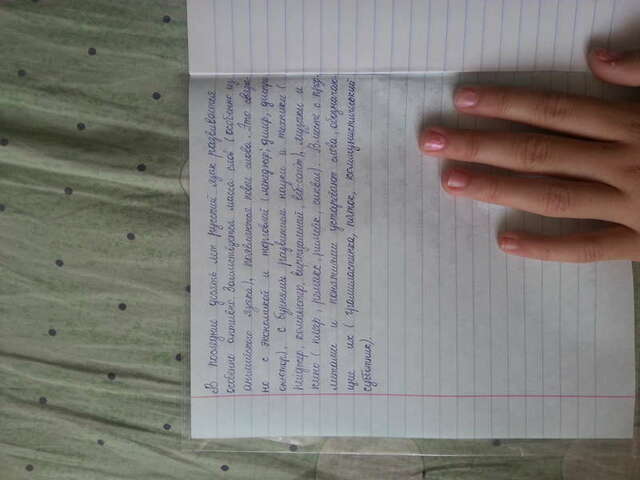 В последние десять лет русский язык развивается
особенно активно. Заимствуется масса слов (особенно из
английского языка), появляются новые слова. Это связа-
но с экономикой и торговлей (менеджер, дилер, дистри
бьютор), с бурным развитием науки и техники (
пейджер, компьютер, виртуальный, веб-сайт), музыки и
кино (плеер, ремикс, римейк, сиквел). Вместе с пред-
метами и понятиями устаревают слова, обозначаю-
щие их (грампластинка, пяток, коммунистический
субботник).